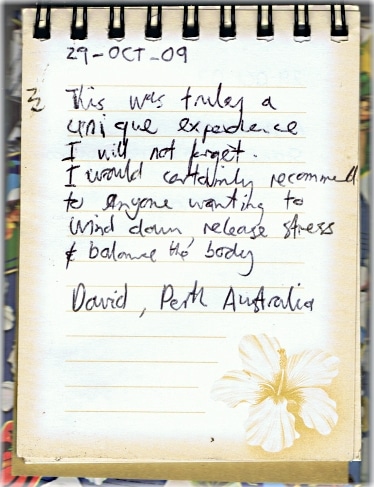 29-OCT-09
This was truley a
unique experience
I will not forget.
I would certainly recommend
to anyone wanting to
wind down, release stress
& balance the body
David, Perth Australia